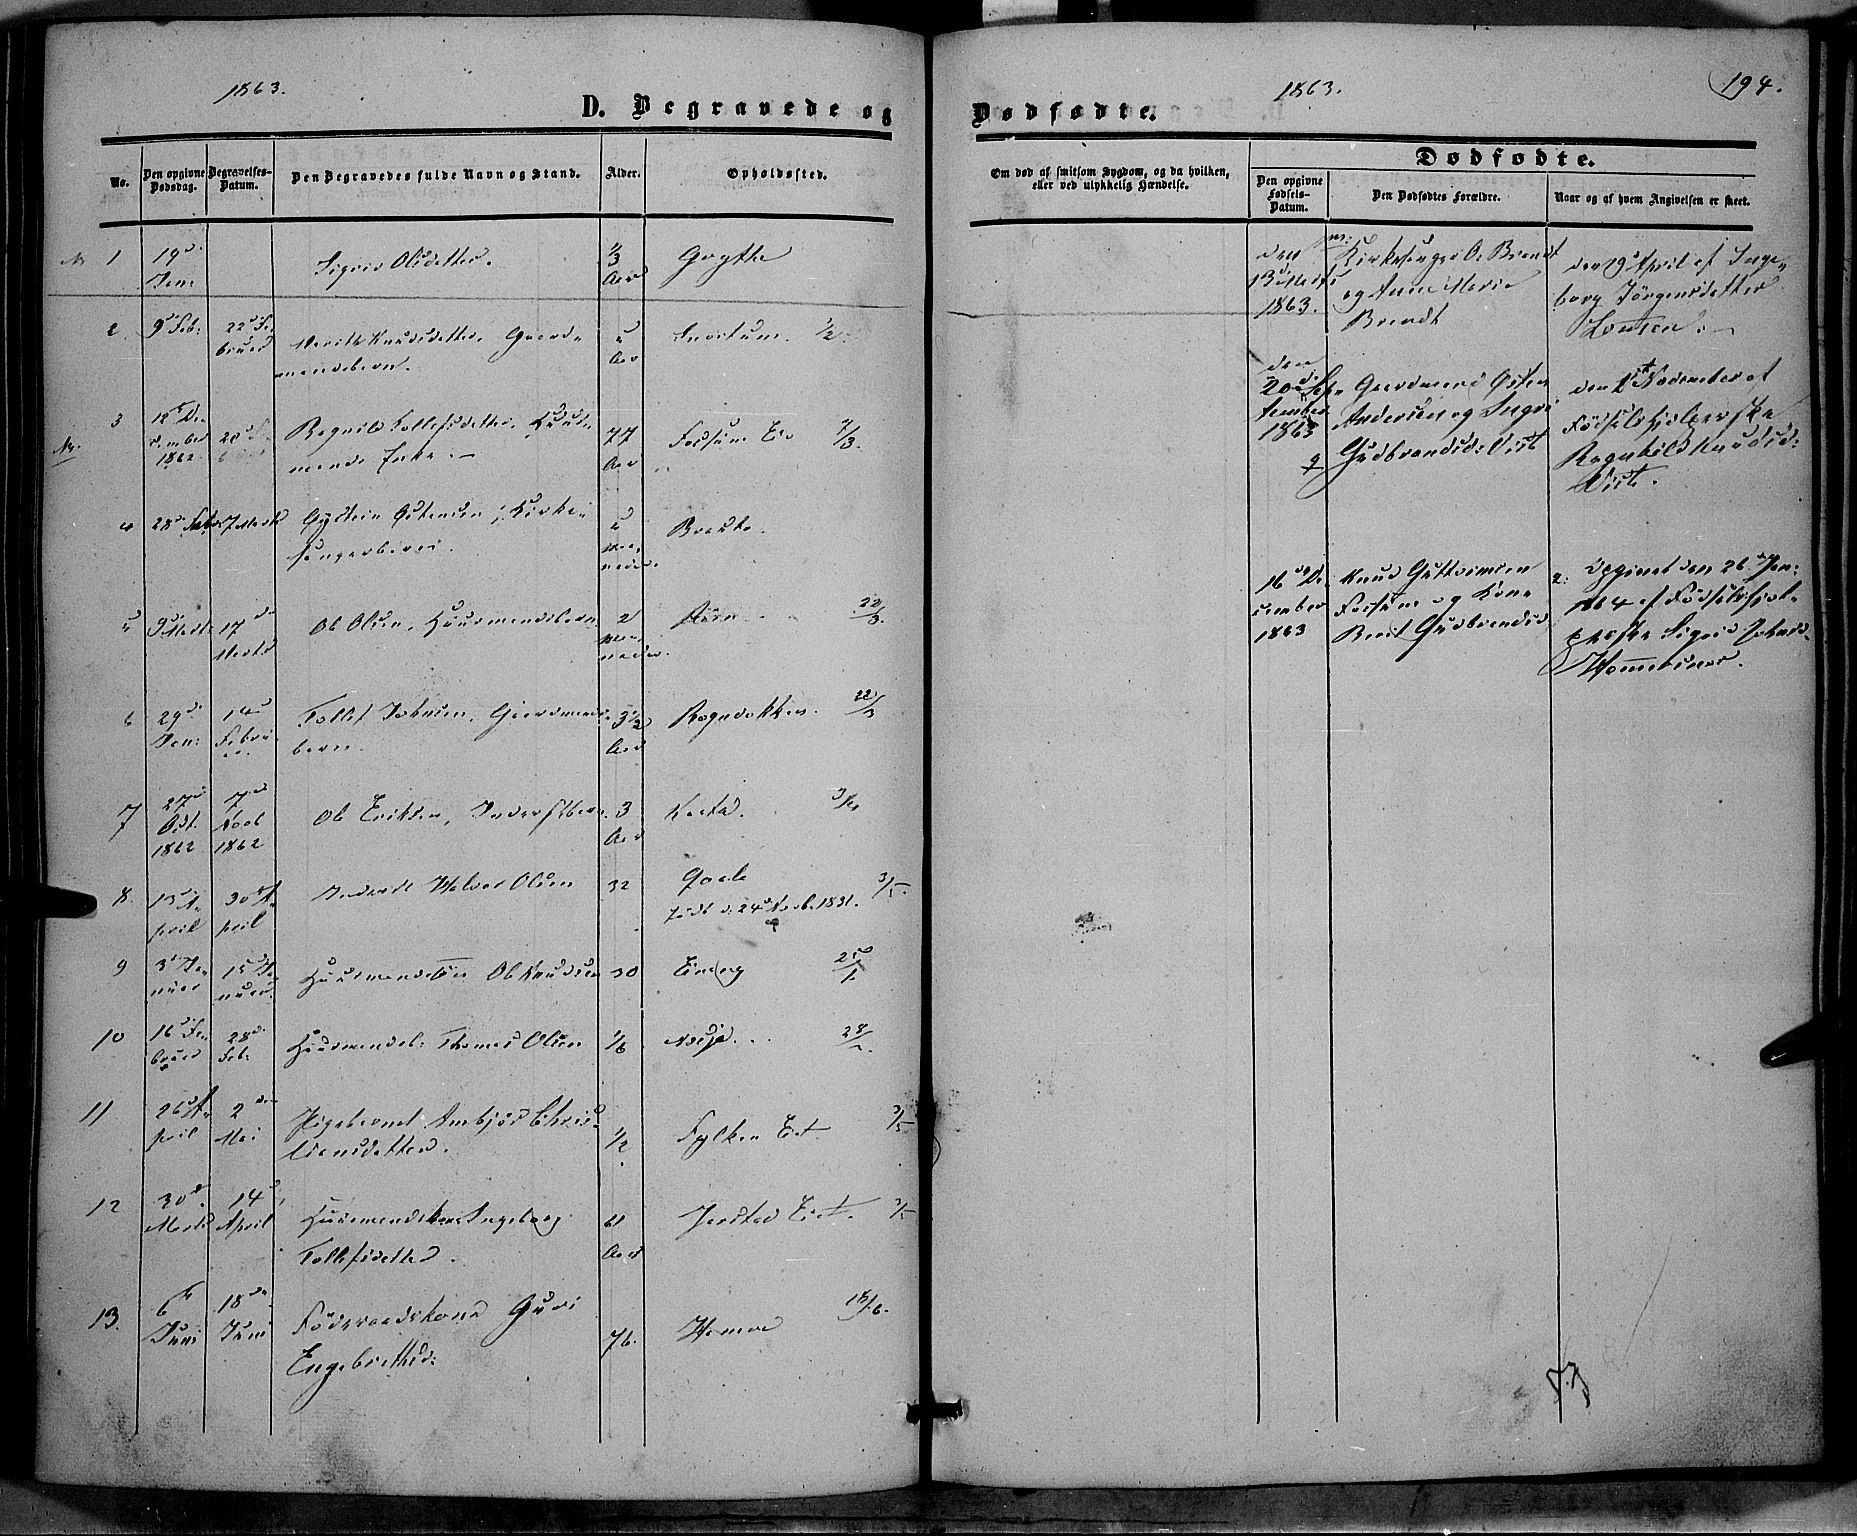 1863.
D. Begravede og
No.
Den opgivne
Dødsdag.
Begravelses-
Datum.
Den Begravedes fulde Navn og Stand.
Alder.
Opholdssted.
1 19de Jan: Sigrid Olsdatter. 1/3 Aar
2 9d Feb: 22d Fe-
bruar Marit Knudsdatter, Gaard-
mandsbarn. Aar 1/2
3 12te De-
cember
1862 Ragnild Tollefsdatter, Huus-
mands Enke. 77 Aar Fossum Eie
4 28d Feb: 7 Marts Øystein Østensen, Kirke-
sangerbarn. Maa-
neder. Braate.
5 9d Marts 17de Marts Ole Olsen, Huusmandsbarn 2 Maa-
neder. 22/3.
6 29de Jan: 14d Febru-
ar Tollef Johnsen, Gaardmands-
barn. 3 1/2 Aar Rognebakken. 22/3
7 27de Oct. 1862 7de Novb 1862 Ole Eriksen, Inderstbarn. 3 Aar
8. 13d A-
pril 30d A-
pril Inderst Halvor Olsen 32 født d. 24d Novb. 1831. 3/5.
9 3d Ja-
nuar 15d Ja-
nuar. Huusmandssøn Ole Knudsen 30
10 16d Fe-
bruar 28de Feb: Huusmandsb: Thomas Olsen 1/6
11 26d A-
pril 2den Mai Pigebarnet Ambjør Chris-
tiansdatter. 1/2 3/5
12 30d Marts 14d April Huusmandskone Ingeborg
Tollefsdatter. 61 Aar Jorstad Eiet. 3/5
13. 6te Juni 18de Juni Føderaadskone Guri
Engebrethsd: 76. 18/6.
1863.
194.
Dødfødte.
Om død af smitsom Sygdom, og da hvilken,
eller ved ulykkelig Hændelse.
Dødfødte.
Den opgivne
Fødsels-
Datum.
Den Dødfødtes Forældre.
Naar og af hvem Angivelsen er skeet.
den
13d Marts
1863. Kirkesanger O. Brandt
og Anne Marie
Brandt den 9d April af Inge-
borg Jørgensdatter
den
20de Sep-
tember
1863 Gaardmand Østen
Andersen og Ingri
Gudbrandsd: Viste den 1st November af
Fødselshjelperske
Ragnhild Knudsd:
Viste.
16de De-
cember
1863 Knud Guttormsen
Fossum og Kone
Berit Gudbrandsd 2: Opgivet den 26d Jan:
1864 af Fødselshjel-
perske Sigrid Johnsd.